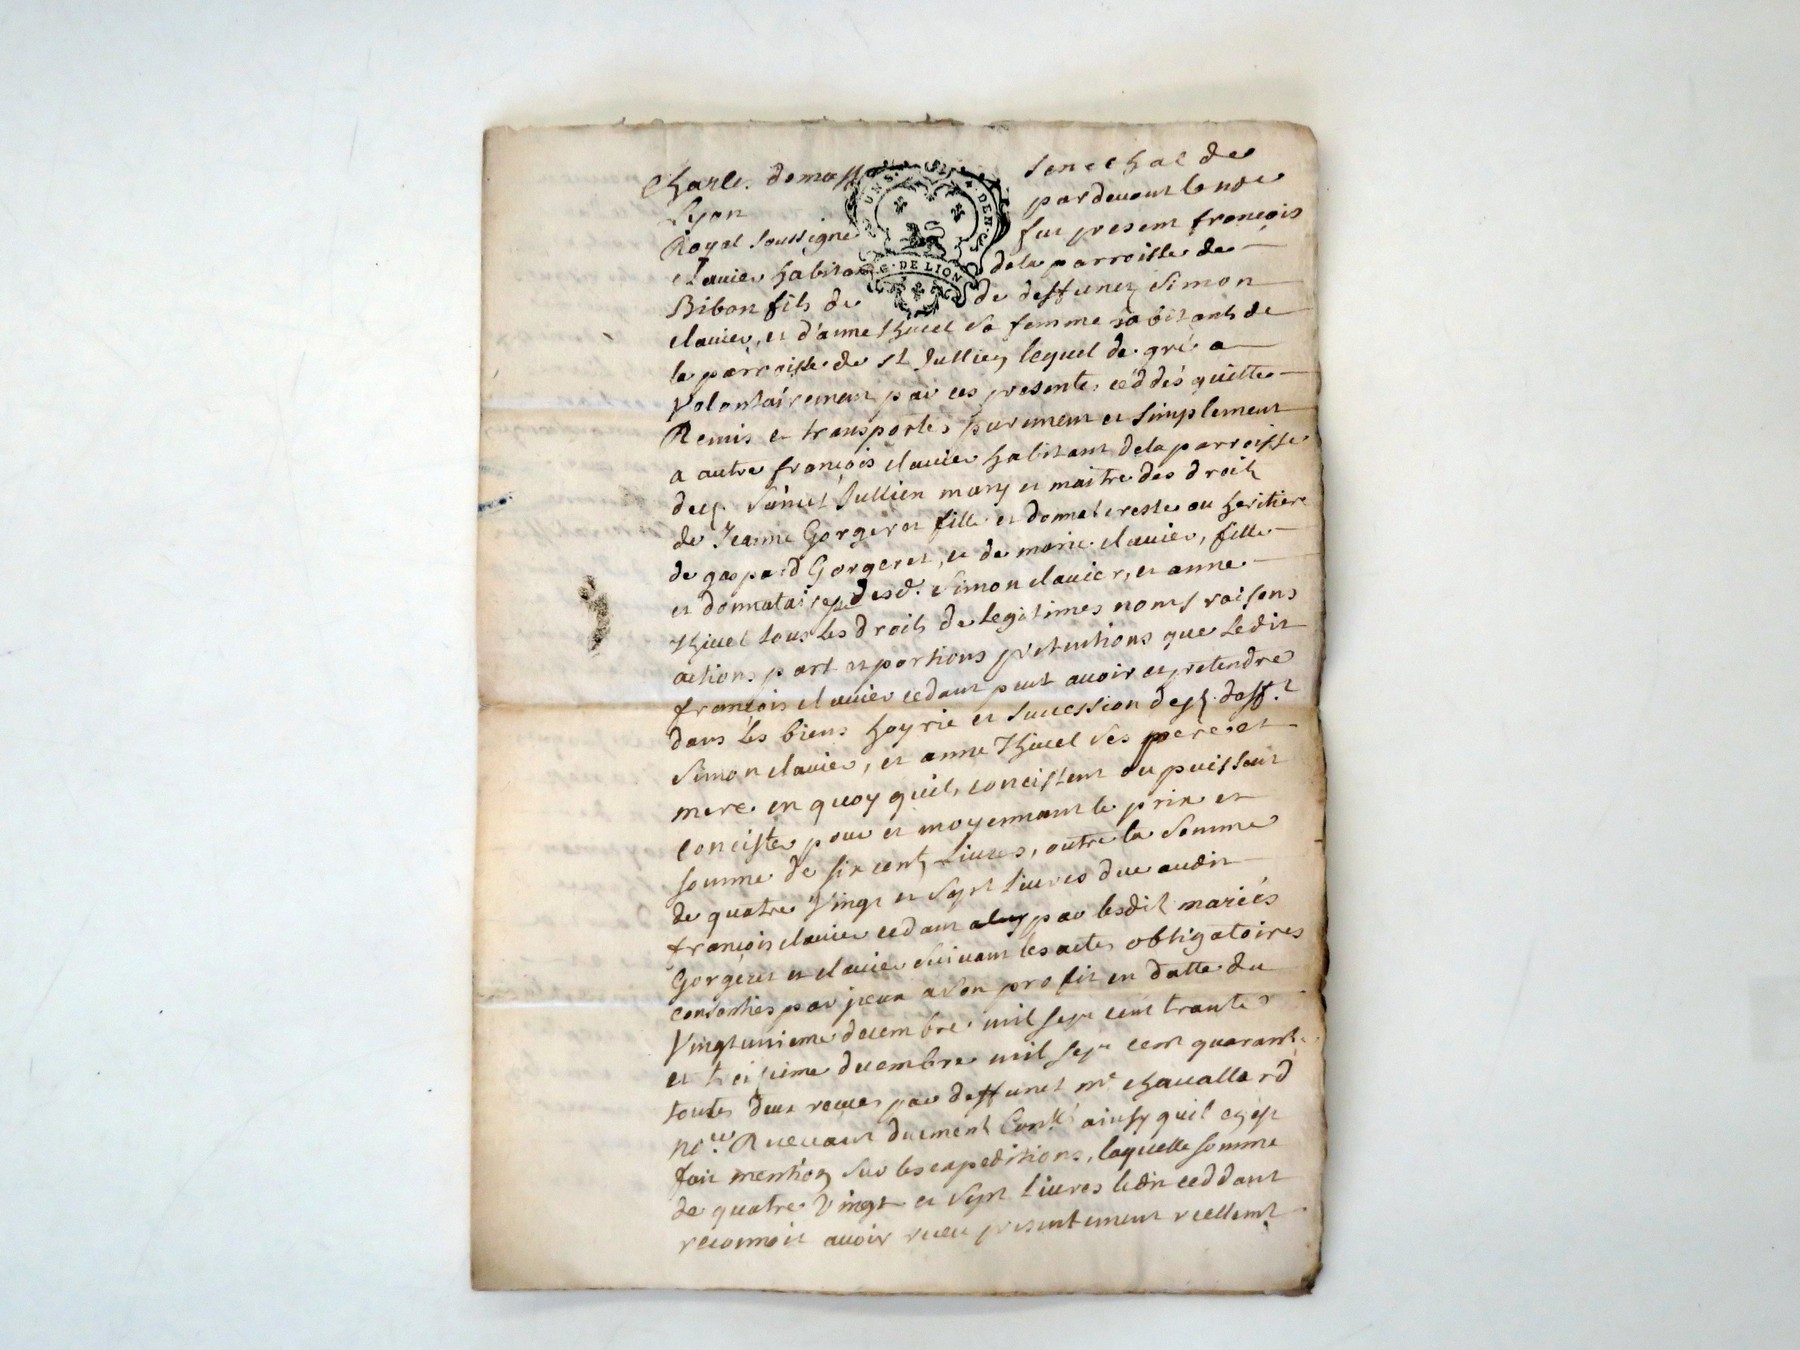 Charles. demasso Senechal de
Lyon pardevant le no.re
Royal soussigné fut present françois
clavier habitant de la parroisse de
Bibon fils de de deffunct Simon
clavier, et d'anne thivel sa femme habitants de
la parroisse de St Jullien lequel de gré a
volontairement par ces presentes ceddés quitte
Remis et transportés purement et simplement
a autre françois clavier habitant dela parroisse
dud. Sainct Jullien mary et maitre des droits
de Jeanne Gorgeret fille et donnateresse ou heritiere
de gaspard Gorgeret, et de marie clavier, fille
et donnataire desd. Simon clavier, et anne
Thivel tous les droits de legitimes noms raisons
actions part et portions pretentions que ledit
françois clavier cedant peut avoir et pretendre
dans les biens hoyrie et succession desd. deff.t
Simon clavier, et anne Thivel ses pere et
mere en quoy quils concistent ou puissent
concister pour et moyennant le prix et
somme de six cents Livres, outre la somme
de quatre vingt et sept livres due audit
françois clavier cedant par lesdits mariés
Gorgeret et clavier suivant les actes obligatoires
consenties par jceux a son profit en datte du
vingtunieme decembre mil sept cent trante
et treisieme decembre mil sept cent quarante
toutes deux receues par deffunct me chavallard
no.re Recevant duement Conllé ainsy quil en est
fait mention sur les expeditions, laquelle somme
de quatre vingt et sept livres ledit ceddant
reconnoit avoir receu presentement reellemt
G. DE LION